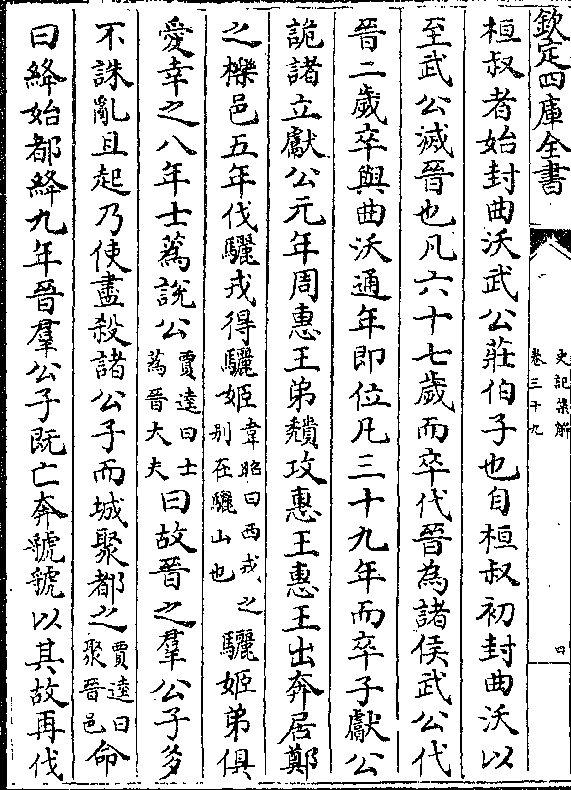 欽定四庫全書
史記集解
卷三十九
四
桓叔者始封曲沃武公莊伯子也自桓叔初封曲沃以
至武公滅晉也凡六十七歲而卒代晉為諸侯武公代
晉二歲卒與曲沃通年即位凡三十九年而卒子獻公
詭諸立獻公元年周惠王弟頽攻惠王惠王出奔居鄭
之櫟邑五年伐驪戎得驪姬韋昭曰西戎之别在驪山也驪姬弟俱
愛幸之八年士蔿說公賈逵曰士蔿晉大夫曰故晉之羣公子多
不誅亂且起乃使盡殺諸公子而城聚都之賈逵曰聚晉邑命
曰絳始都絳九年晉羣公子既亡奔虢虢以其故再伐